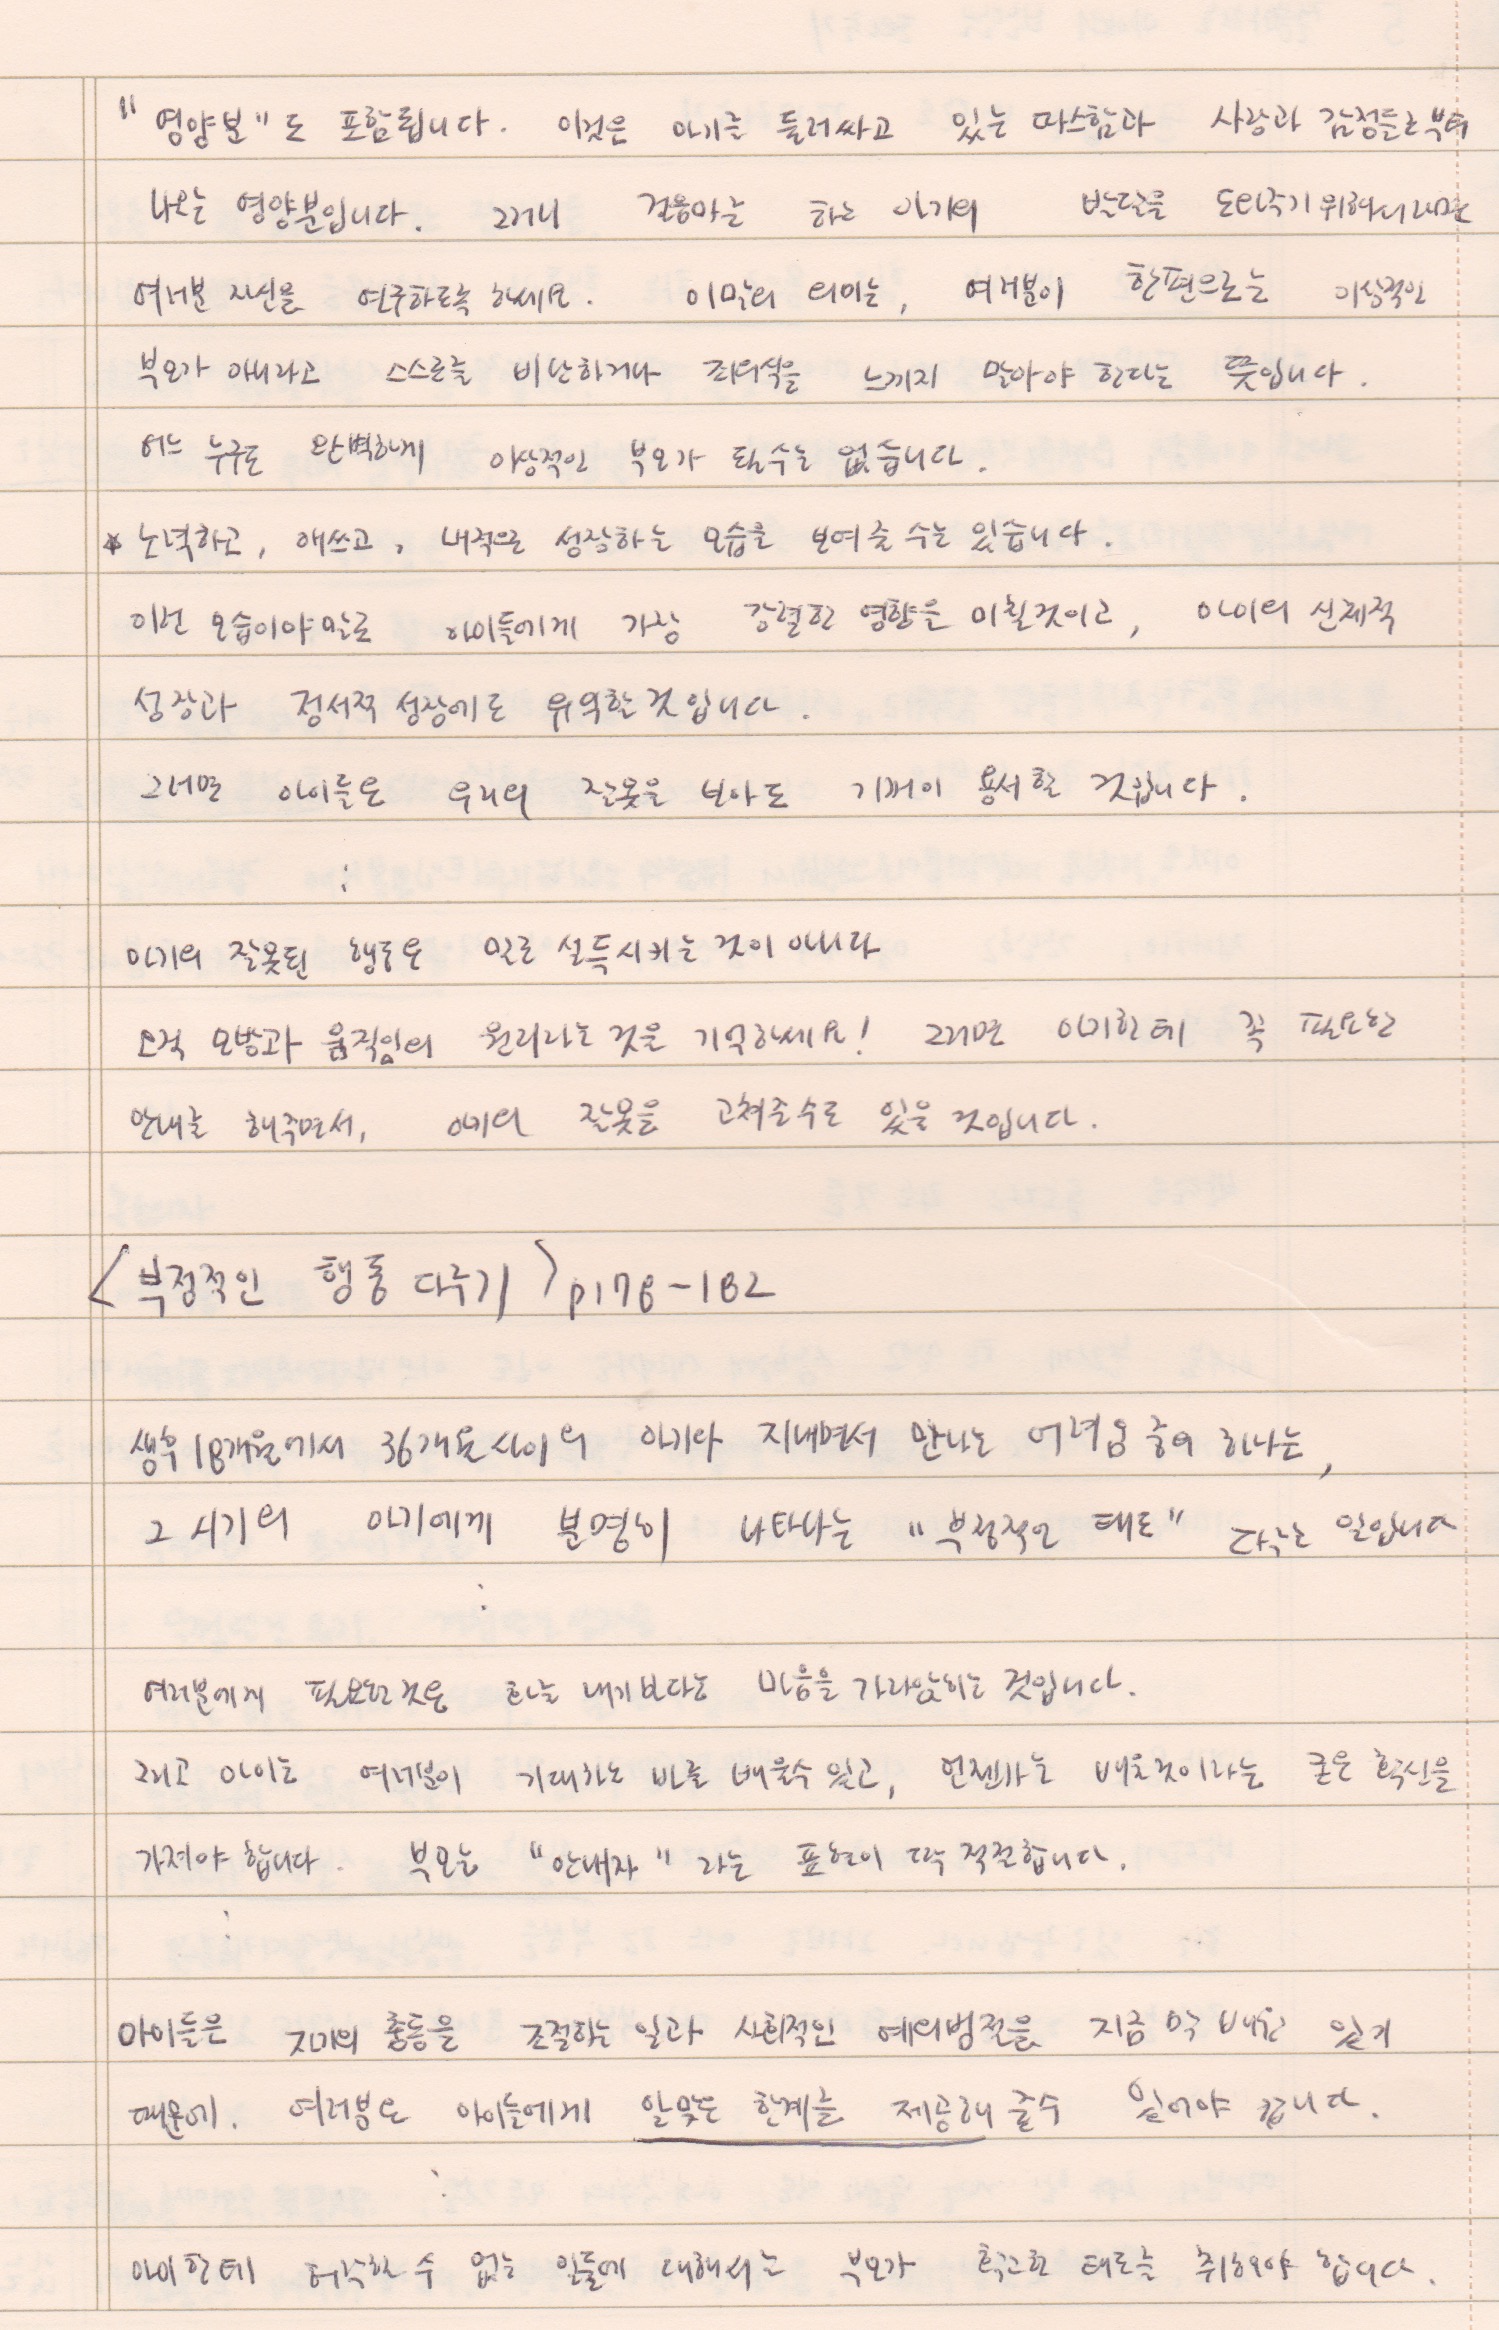 "영양분"도 포함됩니다. 이것은 아기를 둘러싸고 있는 따스함과 사랑과 감정들로부터
나오는 영양분입니다. 그러니 걸음마를 하는 아기의 발달을 도와주기 위해서라면
여러분 자신을 연구하도록 하세요. 이말의 의미는, 여러분이 한편으로는 이상적인
부모가 아니라고 스스로를 비난하거나 죄의식을 느끼지 말아야 한다는 뜻입니다.
어느 누구도 완벽하게 이상적인 부모가 될수는 없습니다.
* 노력하고, 애쓰고, 내적으로 성장하는 모습을 보여줄 수는 있습니다.
이런 모습이야말로 아이들에게 가장 강렬한 영향을 미칠것이고, 아이의 신체적
성장과 정서적 성장에도 유익할 것입니다.
그러면 아이들은 우리의 잘못을 보아도 기꺼이 용서할 것입니다.
:
아기의 잘못된 행동은 말로 설득시키는 것이 아니라
오직 모방과 움직임의 원리라는 것을 기억하세요! 그러면 아기한테 꼭 필요한
안내를 해주면서, 아기의 잘못을 고쳐줄수도 있을 것입니다.
<부정적인 행동 다루기> p178-182
생후 18개월에서 36개월 사이의 아기와 지내면서 만나는 어려움 중의 하나는,
그 시기의 아기에게 분명히 나타나는 "부정적인 태도" 다루는 일입니다
:
여러분에게 필요한 것은 화를 내기보다는 마음을 가라앉히는 것입니다.
그리고 아이는 여러분이 기대하는 바를 배울수 있고, 언젠가는 배울것이라는 굳은 확신을
가져야 합니다. 부모는 "안내자"라는 표현이 딱 적절합니다.
:
아이들은 자기의 충동을 조절하는 일과 사회적인 예의범절을 지금 막 배우고 있기
때문에, 여러분은 아이들에게 알맞은 한계를 제공해 줄수 있어야 합니다.
:
아이한테 허락할 수 없는 일들에 대해서는 부모가 확고한 태도를 취해야 합니다.